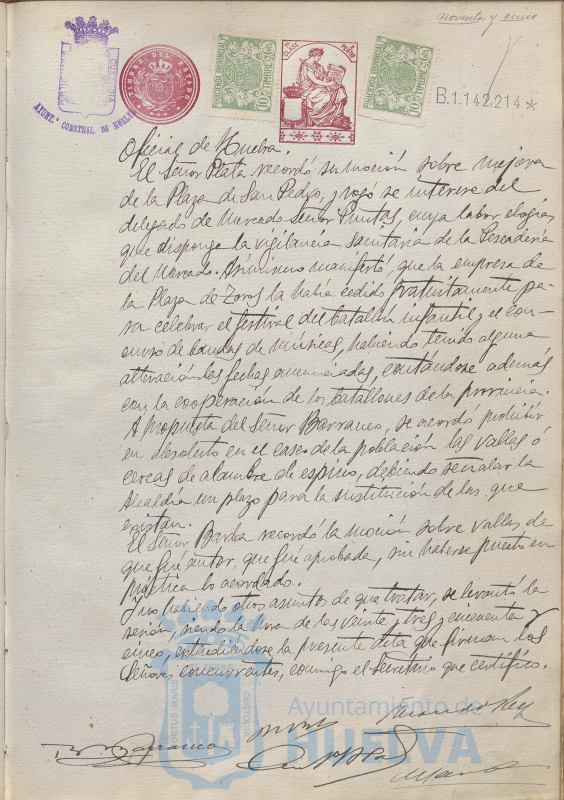 noventa y cinco
PORTUS MARIS
CUSTODIA
AYUNT.º CONSTNAL. DE HUELVA
TIMBRE DEL ESTADO
B.1.142.214*
Oficial de Huelva.
El Señor Plata recordó su moción sobre mejora
de la Plaza de San Pedro, y rogó se interese del
delegado de Mercado Señor cuya labor elogia,
que disponga la vigilancia sanitaria de la Pescadería
del Mercado. Asimismo manifestó, que la empresa de
la Plaza de Toros la había cedido gratuitamente pa-
ra celebrar el festival del batallón infantil y el con-
curso de bandas de músicas, habiendo tenido alguna
alteración las fechas anunciadas, contándose además
con la cooperación de los batallones de la provincia.
A propuesta del Señor Barranco, se acordó prohibir
en absoluto en el casco de la población las vallas ó
cercas de alambre de espino, debiendo señalar la
Alcaldía un plazo para la sustitución de las que
existan.
El Señor Barba recordó la moción sobre vallas de
que fué autor, que fué aprobada, sin haberse puesto en
práctica lo acordado.
Y no habiendo otros asuntos de que tratar, se levantó la
sesión, siendo la hora de las veinte y tres y cincuenta y
cinco, extendiéndose la presente acta que firman los
Señores concurrentes, conmigo el Secretario que certifico.
Barranco
Ayuntamiento de
HUELVA